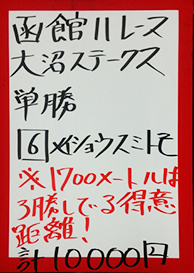 函館11レース
大沼ステークス
単勝
6 メイショウスミトモ
※1700メートルは
3勝してる得意
距離!
計10000円